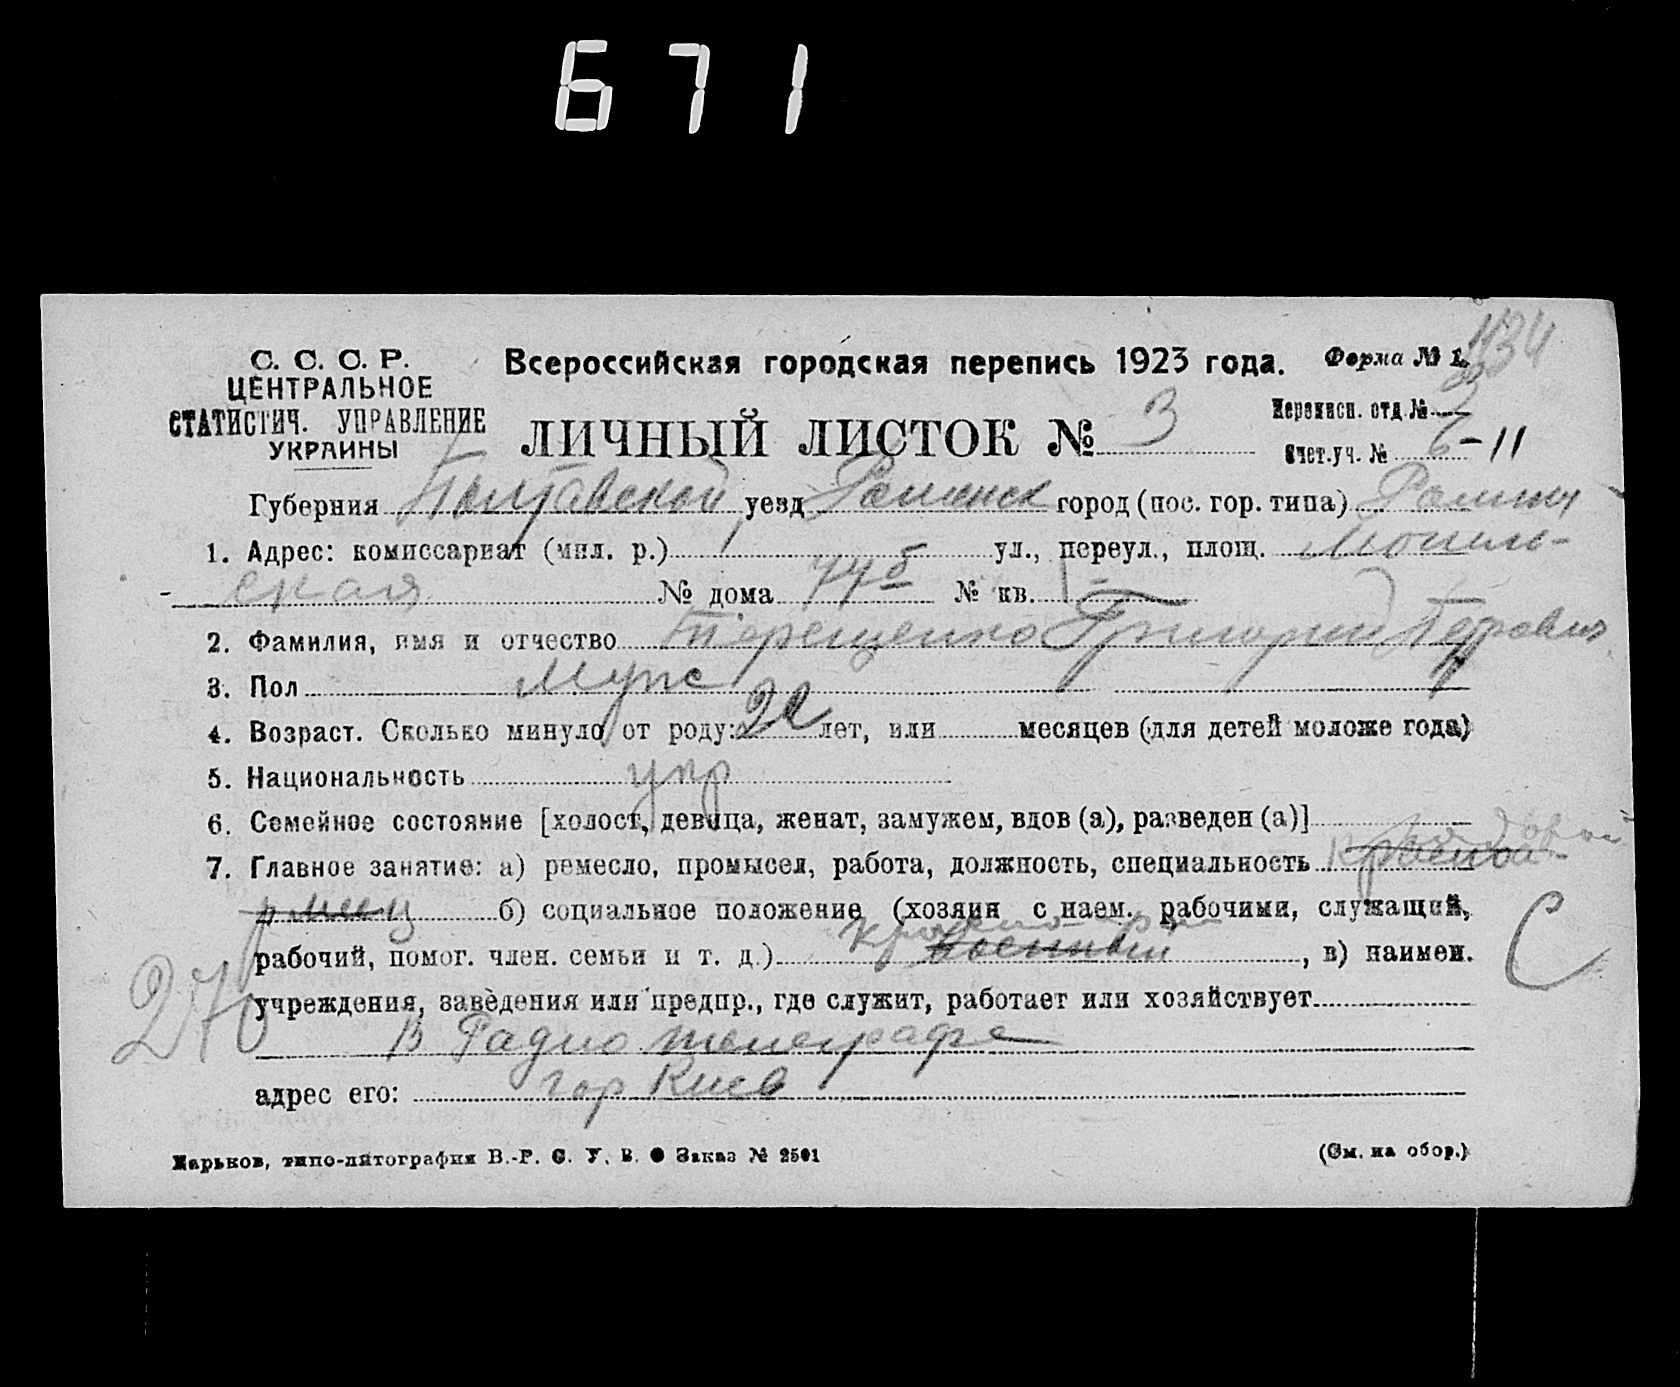 671
1134
С. С. С. Р.
ЦЕНТРАЛЬНОЕ
СТАТИСТИЧ. УПРАВЛЕНИЕ
УКРАИНЫ
Всероссийская городская перепись 1923 года.
Форма № 1.
ЛИЧНЫЙ ЛИСТОК № 3
Переписн. отд. №
Счет. уч. № 6-11
Губерния Полтавской уезд Роменск город (пос. гор. типа) Ромны
1. Адрес: комиссариат (мил. р.) ул., переул., площ.
ская № дома 74б № кв. 1
2. Фамилия, имя и отчество Терещенко Григорий Петрович
3. Пол Муж
4. Возраст. Сколько минуло от роду: 22 лет, или месяцев (для детей моложе года)
5. Национальность укр
6. Семейное состояние [холост, девица, женат, замужем, вдов (а), разведен (а)]
7. Главное занятие: а) ремесло, промысел, работа, должность, специальность рядовой
б) социальное положение (хозяин с наем. рабочими, служащий,
рабочий, помог. член. семьи и т. д.) военный, в) наимен.
учреждения, заведения или предпр., где служит, работает или хозяйствует
В Радио телеграфе
адрес его: гор Киев
270
С
Харьков, типо-литография В.-Р. С. У. В. ● Заказ № 2501
(См. на обор.)